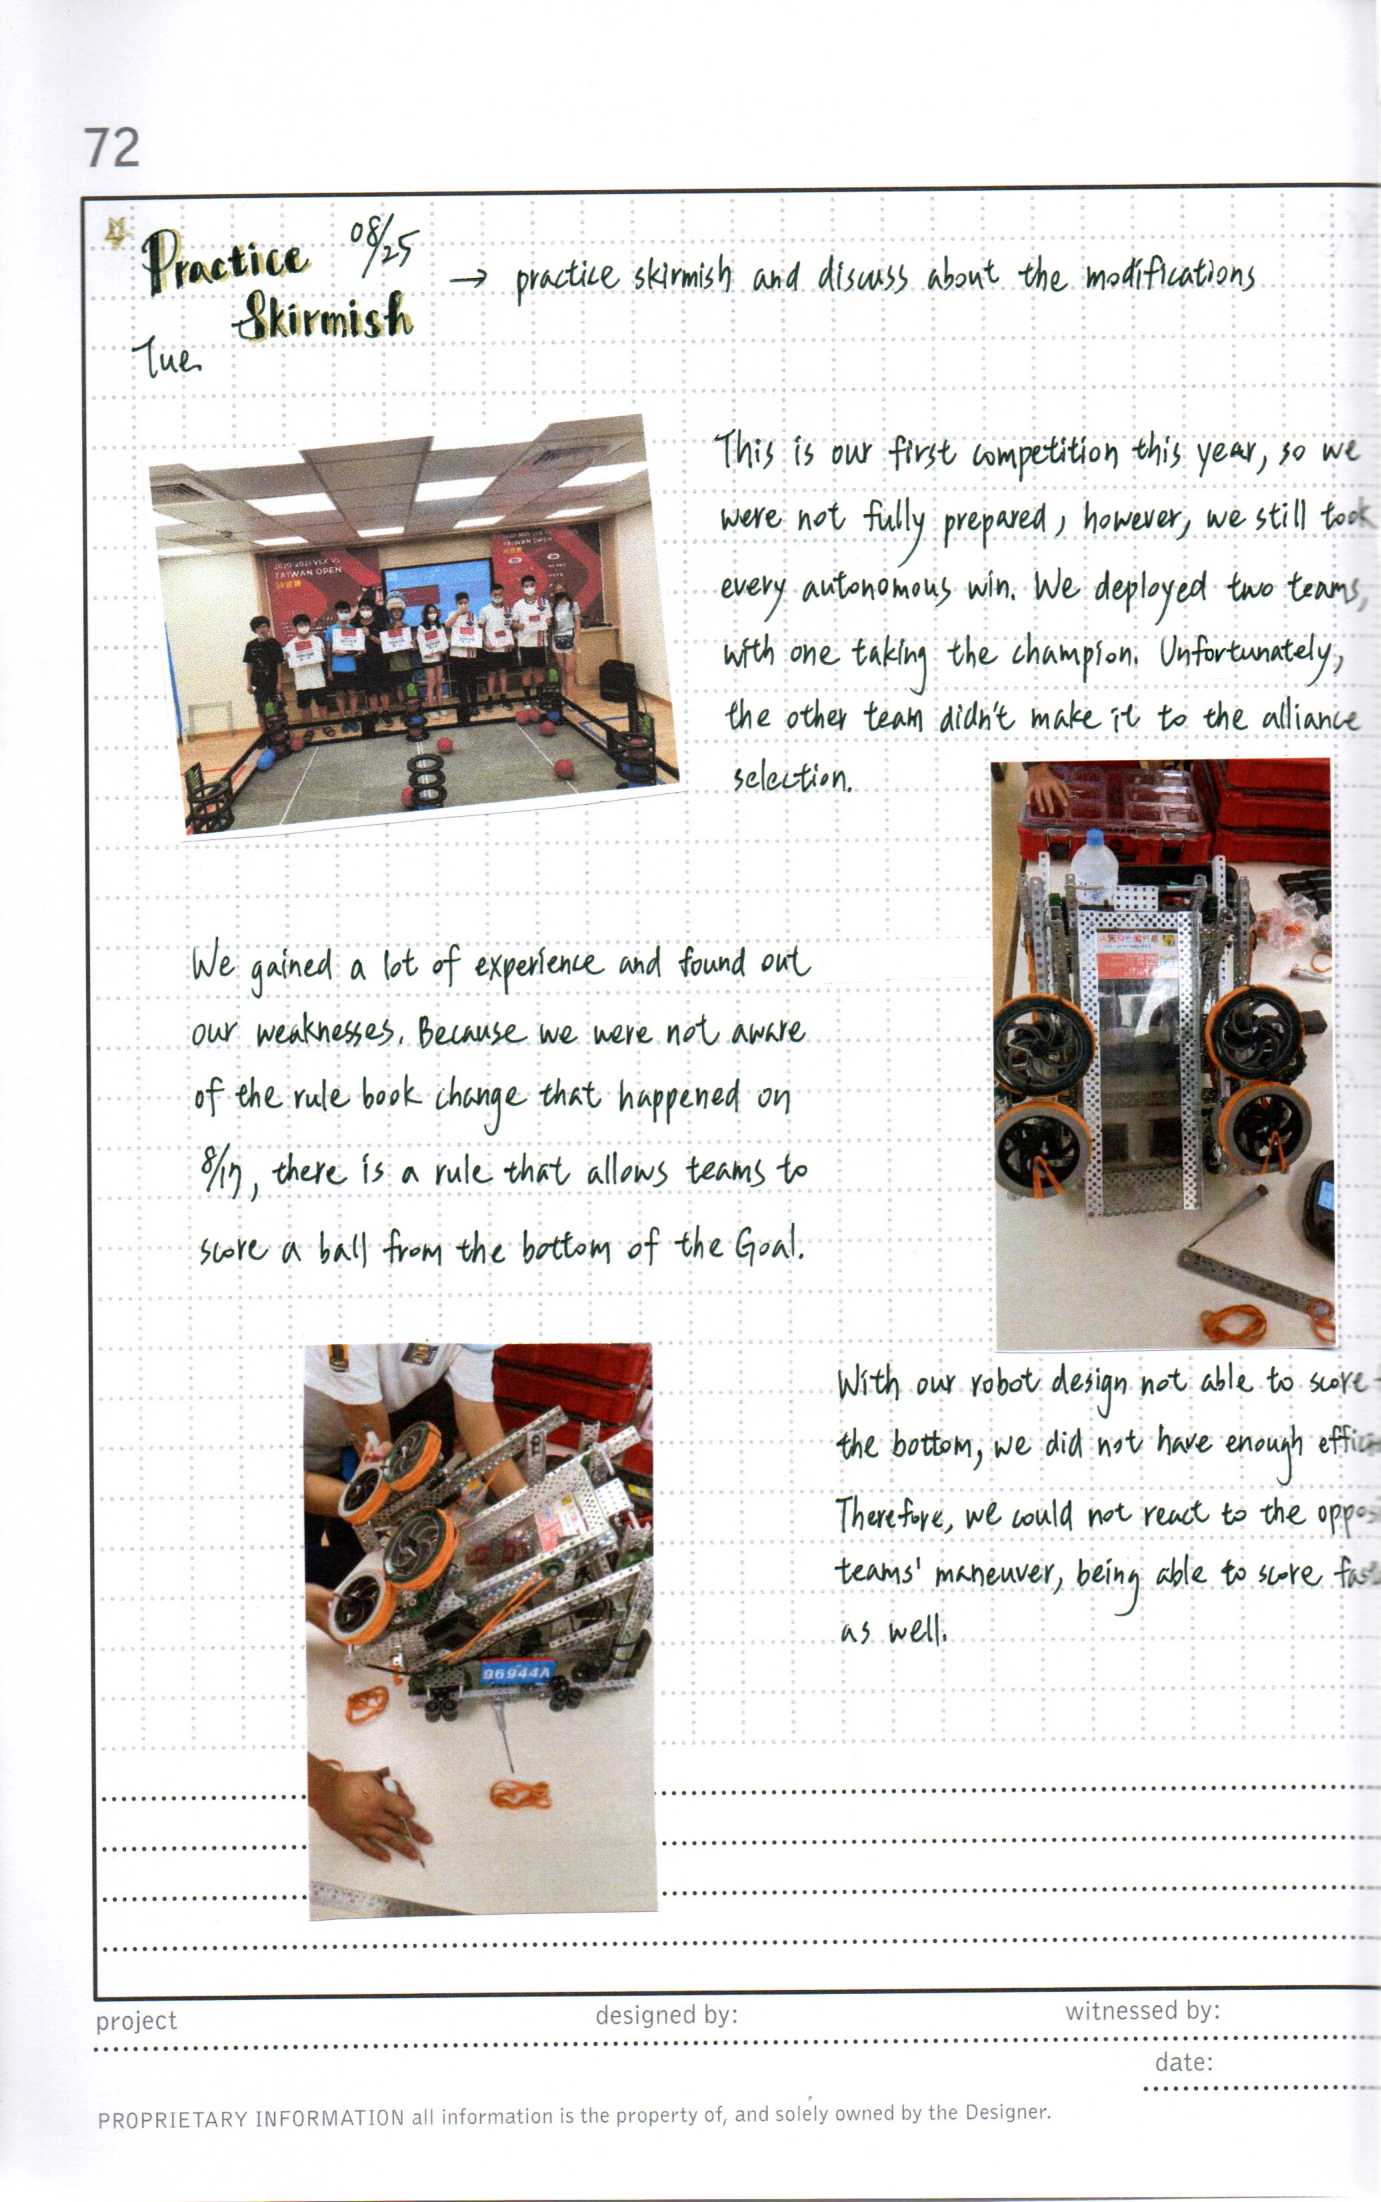 72
Practice 08/25
Skirmish
→ practice skirmish and discuss about the modifications
Tue.
This is our first competition this year, so we
were not fully prepared, however, we still took
every autonomous win. We deployed two teams,
with one taking the champion. Unfortunately,
the other team didn't make it to the alliance
selection.
2020-2021 VEX
TAIWAN OPEN
TAIWAN OPEN
We gained a lot of experience and found out
our weaknesses. Because we were not aware
of the rule book change that happened on
8/17, there is a rule that allows teams to
score a ball from the bottom of the Goal.
With our robot design not able to score
the bottom, we did not have enough
Therefore, we could not react to the
teams' maneuver, being able to score
as well.
96944A
project
designed by:
witnessed by:
date:
PROPRIETARY INFORMATION all information is the property of, and solely owned by the Designer.